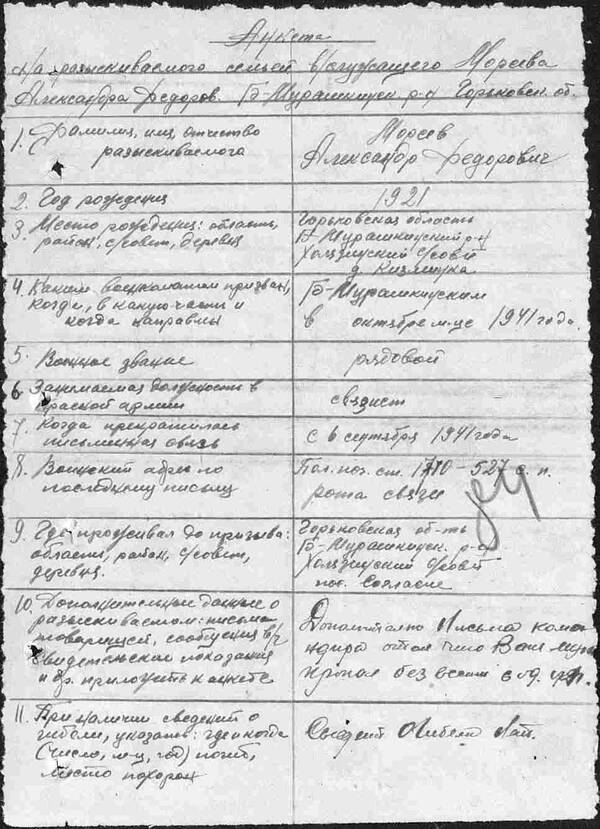 Анкета
На разыскиваемого семьей в/служащего Мореева
Александра Федоров. Б-Мурашкинск р-н Горьковск. об.
1. Фамилия, имя, отчество
разыскиваемого
Мореев
Александр Федорович
2. Год рождения
1921
3. Место рождения: область,
район, с/совет, деревня
Горьковская область
Б-Мурашкинский р-н
с/совет
д.
4. Каким военкоматом призван,
когда, в какую часть и
когда направлен
Б-Мурашкинским
в октябре м-це 1941 года.
5. Воинское звание
рядовой
6. Занимаемая должность в
Красной армии
связист
7. Когда прекратилась
письменная связь
с 6 сентября 1941 года
8. Воинский адрес по
последнему письму
Пол. поз. ст. 1710-527 с. п.
рота связи
9. Где проживал до призыва:
область, район, с/совет,
деревня.
Горьковская об-ть
Б-Мурашкинск. р-н
с/совет
пос. Согласие
10. Дополнительные данные о
разыскиваемом: письма
товарищей, сообщения в/ч
свидетельские показания
и др. приложить к анкете
Письма кома-
ндира что Ваш муж
пропал без вести
11. При наличии сведений о
гибели, указать: где и когда
(число, м-ц, год) погиб,
место похорон